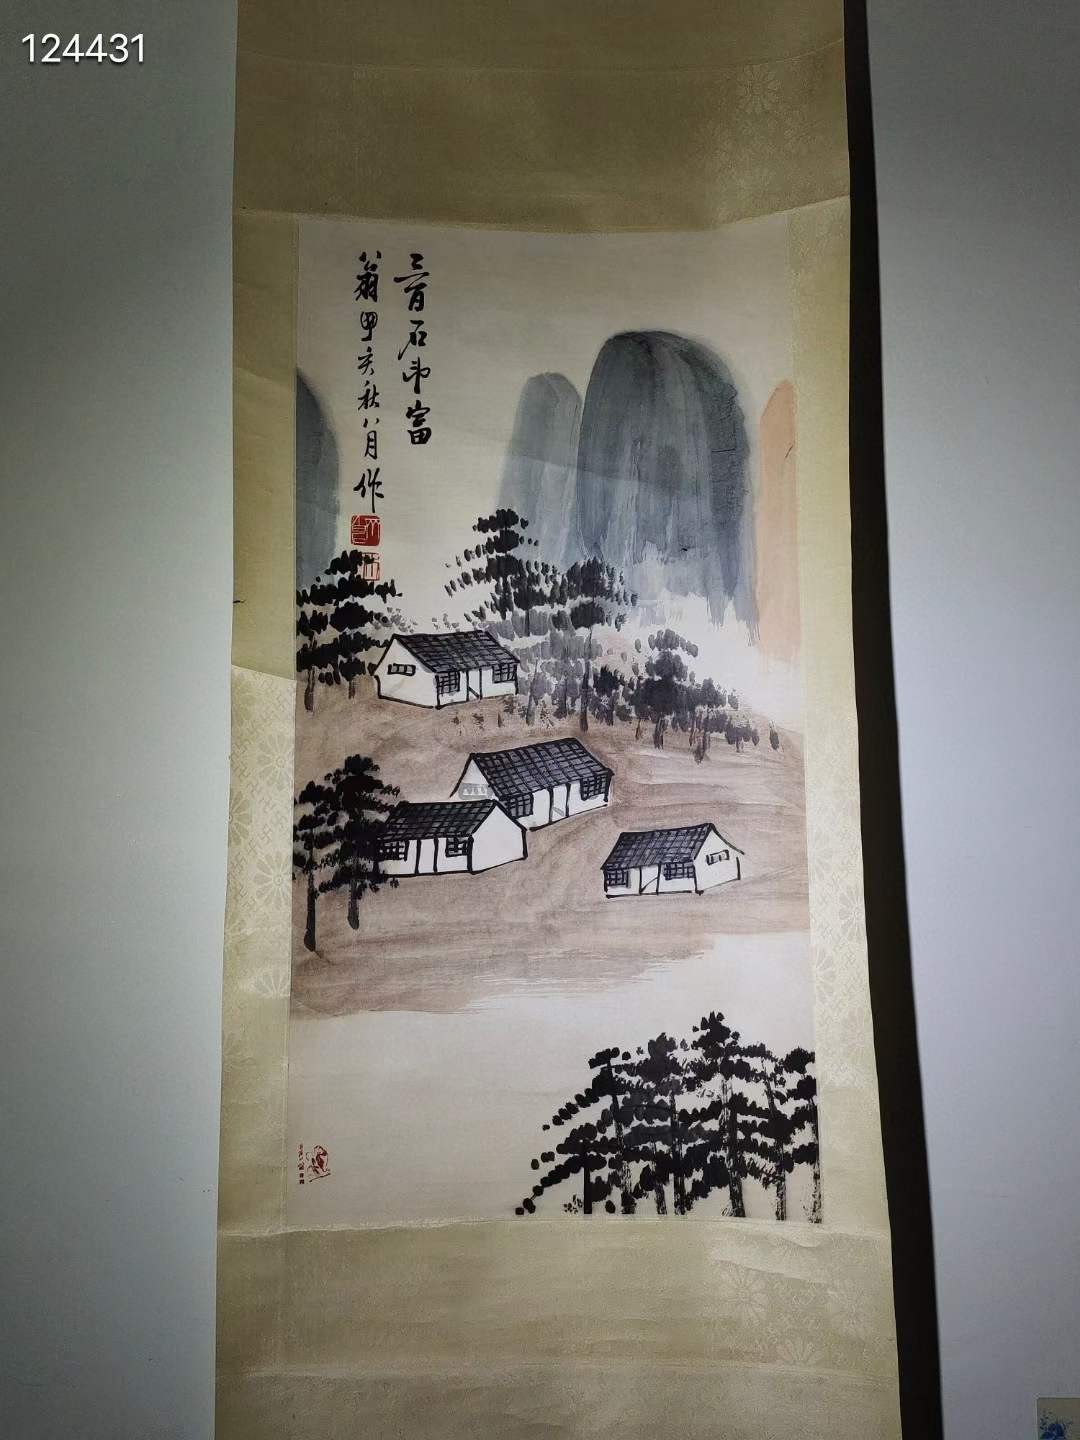 124431
三百石印富
翁甲亥秋八月作